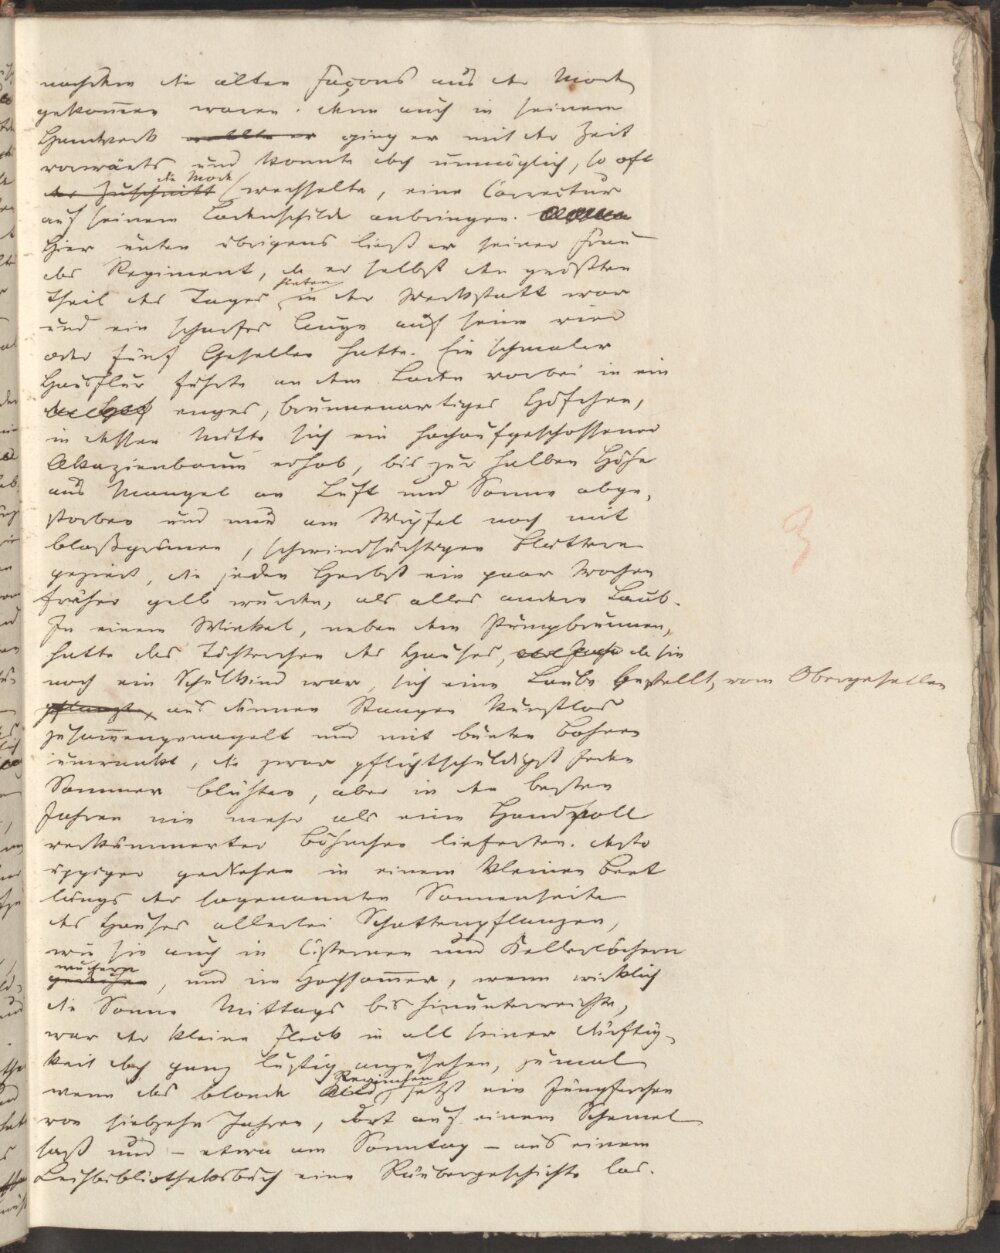 nachdem die alten Façons aus der Mode
gekom̄en waren. Denn auch in seinem
Handwerk wollte er ging er mit der Zeit
vorwärts und konnte doch unmöglich, so oft
der Zuschnitt die Mode wechselte, eine Correctur
auf seinem Ladenschilde anbringen.
Hier unten übrigens ließ er seiner Frau
das Regiment, da er selbst den größten
Theil des Tages hinten in der Werkstatt war
und ein scharfes Auge auf seine vier
oder fünf Gesellen hatte. Ein schmaler
Hausflur führte an dem Laden vorbei in ein
enges, brunnenartiges Höfchen,
in dessen Mitte sich ein hochaufgeschossener
Akazienbaum erhob, bis zur halben Höhe
aus Mangel an Luft und Sonne abge-
storben und nur am Wipfel noch mit
blaßgrünen, schwindsüchtigen Blättern
geziert, die jeden Herbst ein paar Wochen
früher gelb wurden, als alles andere Laub.
In einem Winkel, neben dem Pumpbrunnen,
hatte das Töchterchen des Hauses, da sie
noch ein Schulkind war, sich eine Laube bestellt, vom Obergesellen
pflanzte, aus dünnen Stangen kunstlos
zusam̄engenagelt und mit bunten Bohnen
umrankt, die zwar pflichtschuldigst jeden
Sommer blühten, aber in den besten
Jahren nie mehr als eine Handvoll
verkümmerter Böhnchen lieferten. Desto
üppiger gediehen in einem kleinen Beet
längs der sogenannten Sonnenseite
des Hauses allerlei Schattenpflanzen,
wie sie auch in Cisternen und Kellerlöchern
gedeihen wuchern, und im Hochsom̄er, wenn wirklich
die Sonne Mittags bis hinunterreichte,
war der kleine Fleck in all seiner Dürftig-
keit doch ganz lustig anzusehen, zumal
wenn das blonde Kind Reginchen, jetzt ein Jüngferchen
von siebzehn Jahren, dort auf einem Schemel
saß und – etwa am Sonntag – aus einem
Leihbibliotheksbuch eine Räubergeschichte las.
3